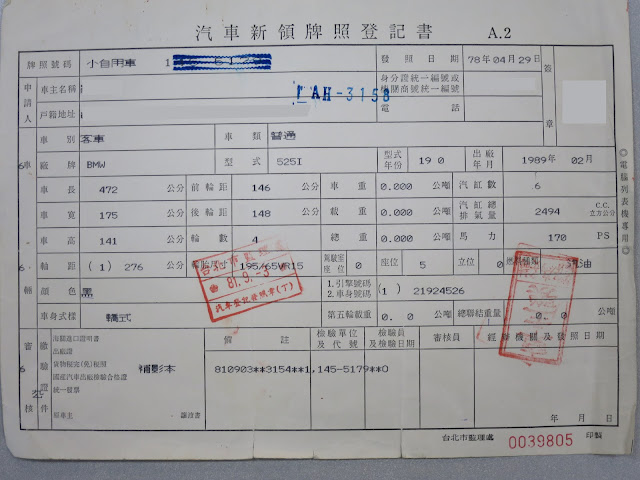 汽車新領牌照登記書 A.2
牌照號碼 小自用車 1 發照日期 78年04月29日
申請人 車主名稱 身分證統一編號或 簽章
IAH-3158
戶籍地址 電話
車別 客車 車類 普通
廠牌 BMW 型式 525I 型式年份 190 出廠年月 1989年02月
車長 472 公分 前輪距 146 公分 車重 0.000 公噸 汽缸數 6
車寬 175 公分 後輪距 148 公分 載重 0.000 公噸 汽缸總排氣量 2494 C.C. 立方公分
車高 141 公分 輪數 4 總重 0.000 公噸 馬力 170 PS
軸距 (1) 276 公分 195/65VR15 駕駛室座位 0 座位 5 立位 0
台北市監理處
81.9.3
汽車登記發照章(丁)
顏色 黑 1.引擎號碼 2.車身號碼 (1) 21924526
車身式樣 轎式 第五輪載重 0.0 公噸 總聯結重量 0.0 公噸
審核 繳驗證件 海關進口證明書 備註 檢驗單位及代號 檢驗員及檢驗日期 審核員 經辦機關及發照日期
出廠證
統一發票
補影本
810903**3154**1,145-5179**0
原車主 讓渡書
年 月 日
台北市監理處 0039805 印製
◎電腦列表機專用◎